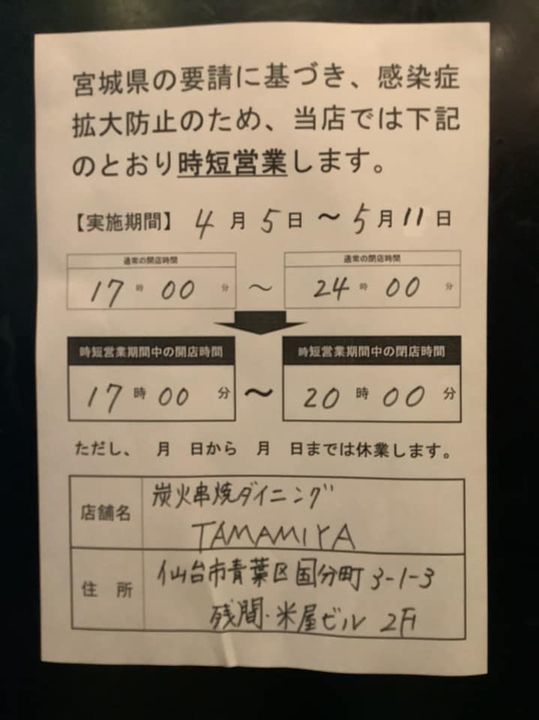 宮城県の要請に基づき、感染症
拡大防止のため、当店では下記
のとおり時短営業します。
【実施期間】 4月5日 ～ 5月11日
通常の開店時間 通常の閉店時間
17時00分 ～ 24時00分
時短営業期間中の開店時間 時短営業期間中の閉店時間
17時00分 ～ 20時00分
ただし、 月 日から 月 日までは休業します。
店舗名 炭火串焼ダイニング
TAMAMIYA
住 所 仙台市青葉区国分町3-1-3
残間・米屋ビル 2F